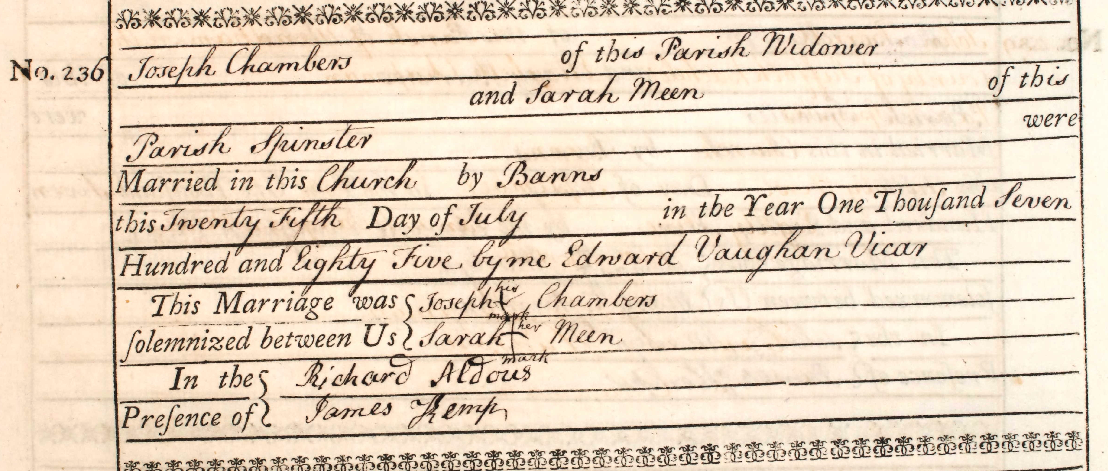 No. 236 Joseph Chambers of this Parish Widower
and Sarah Meen of this
were
Parish Spinster
Married in this Church by Banns
this Twenty Fifth Day of July in the Year One Thouſand Seven
Hundred and Eighty Five by me Edward Vaughan Vicar
This Marriage was { Joseph his mark Chambers
ſolemnized between Us { Sarah her mark Meen
In the { Richard Aldous
Preſence of { James Kemp